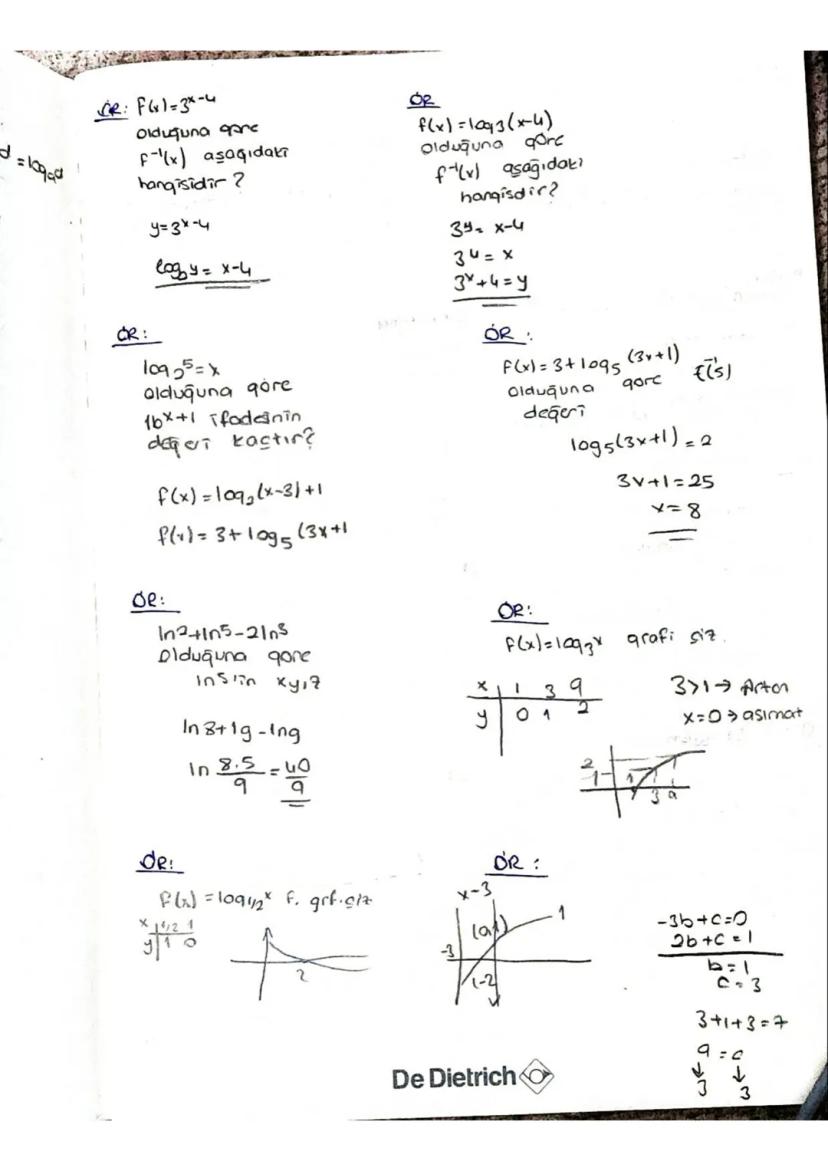 ÖR: f(x)=3^x-4
olduğuna göre
f^-1(x) aşağıdaki
hangisidir?
y=3^x-4
log3y = x-4
ÖR
f(x)=log3(x-4)
olduğuna göre
f^-1(x) aşağıdaki
hangisdir?
3^y = x-4
3^4 = x
3^x+4=y
ÖR:
log2^5=x
olduğuna göre
16^x+1 ifadesinin
değeri kaçtır?
f(x)=log2(x-3)+1
f(x)=3+log5(3x+1
ÖR:
f(x)=3+log5(3x+1)
olduğuna göre f^-1(5)
değeri
log5(3x+1)=2
3x+1=25
x=8
ÖR:
ln2+ln5-2ln3
Olduğuna göre
ln 8+ -ln9
ln 8.5/9 = 40/9
ÖR:
f(x)=log3^x grafi çiz.
x 1 3 9
y 0 1 2
3>1→ Artan
x=0→asimat
2
1
1 3 9
ÖR:
f(x)=log1/2^x f. grf.çiz
x 1/2 1
y 1 0
2
ÖR:
x-3
1
-3
(-2
-3b+c=0
2b+c=1
b=1
c=3
3+1+3=7
a = c
3 3
De Dietrich